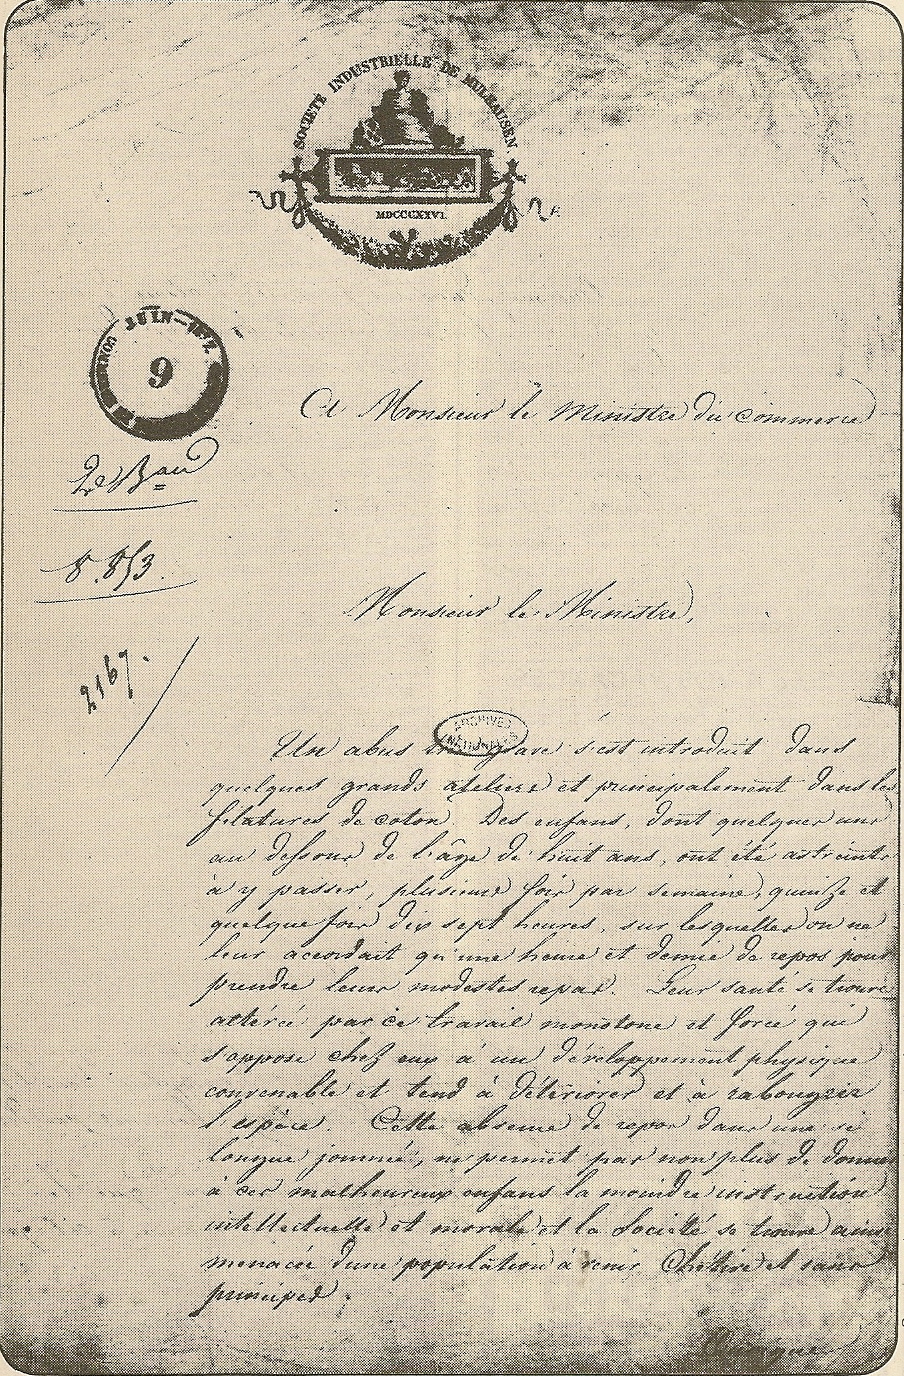 SOCIÉTÉ INDUSTRIELLE DE MULHAUSEN.
MDCCCXXVI.
JUIN
9
A Monsieur le Ministre du Commerce
2e Bau
8.853.
2167.
Monsieur le Ministre,
ARCHIVES NATIONALES
Un abus très grave s'est introduit dans
quelques grands ateliers et principalement dans les
filatures de coton. Des enfans, dont quelques uns
au dessous de l'âge de huit ans, ont été astreints
à y passer, plusieurs fois par semaine, quinze et
quelque fois dix sept heures, sur lesquelles on ne
leur accordait qu'une heure et demie de repos pour
prendre leurs modestes repas. Leur santé se trouve
altérée par ce travail monotone et forcé qui
s'oppose chez eux à un développement physique
convenable et tend à détériorer et à rabougrir
l'espèce. Cette absence de repos dans une si
longue journée, ne permet pas non plus de donner
à ces malheureux enfans la moindre instruction
intellectuelle et morale et la Société se trouve ainsi
menacée d'une population à venir Chétive et sans
principes.